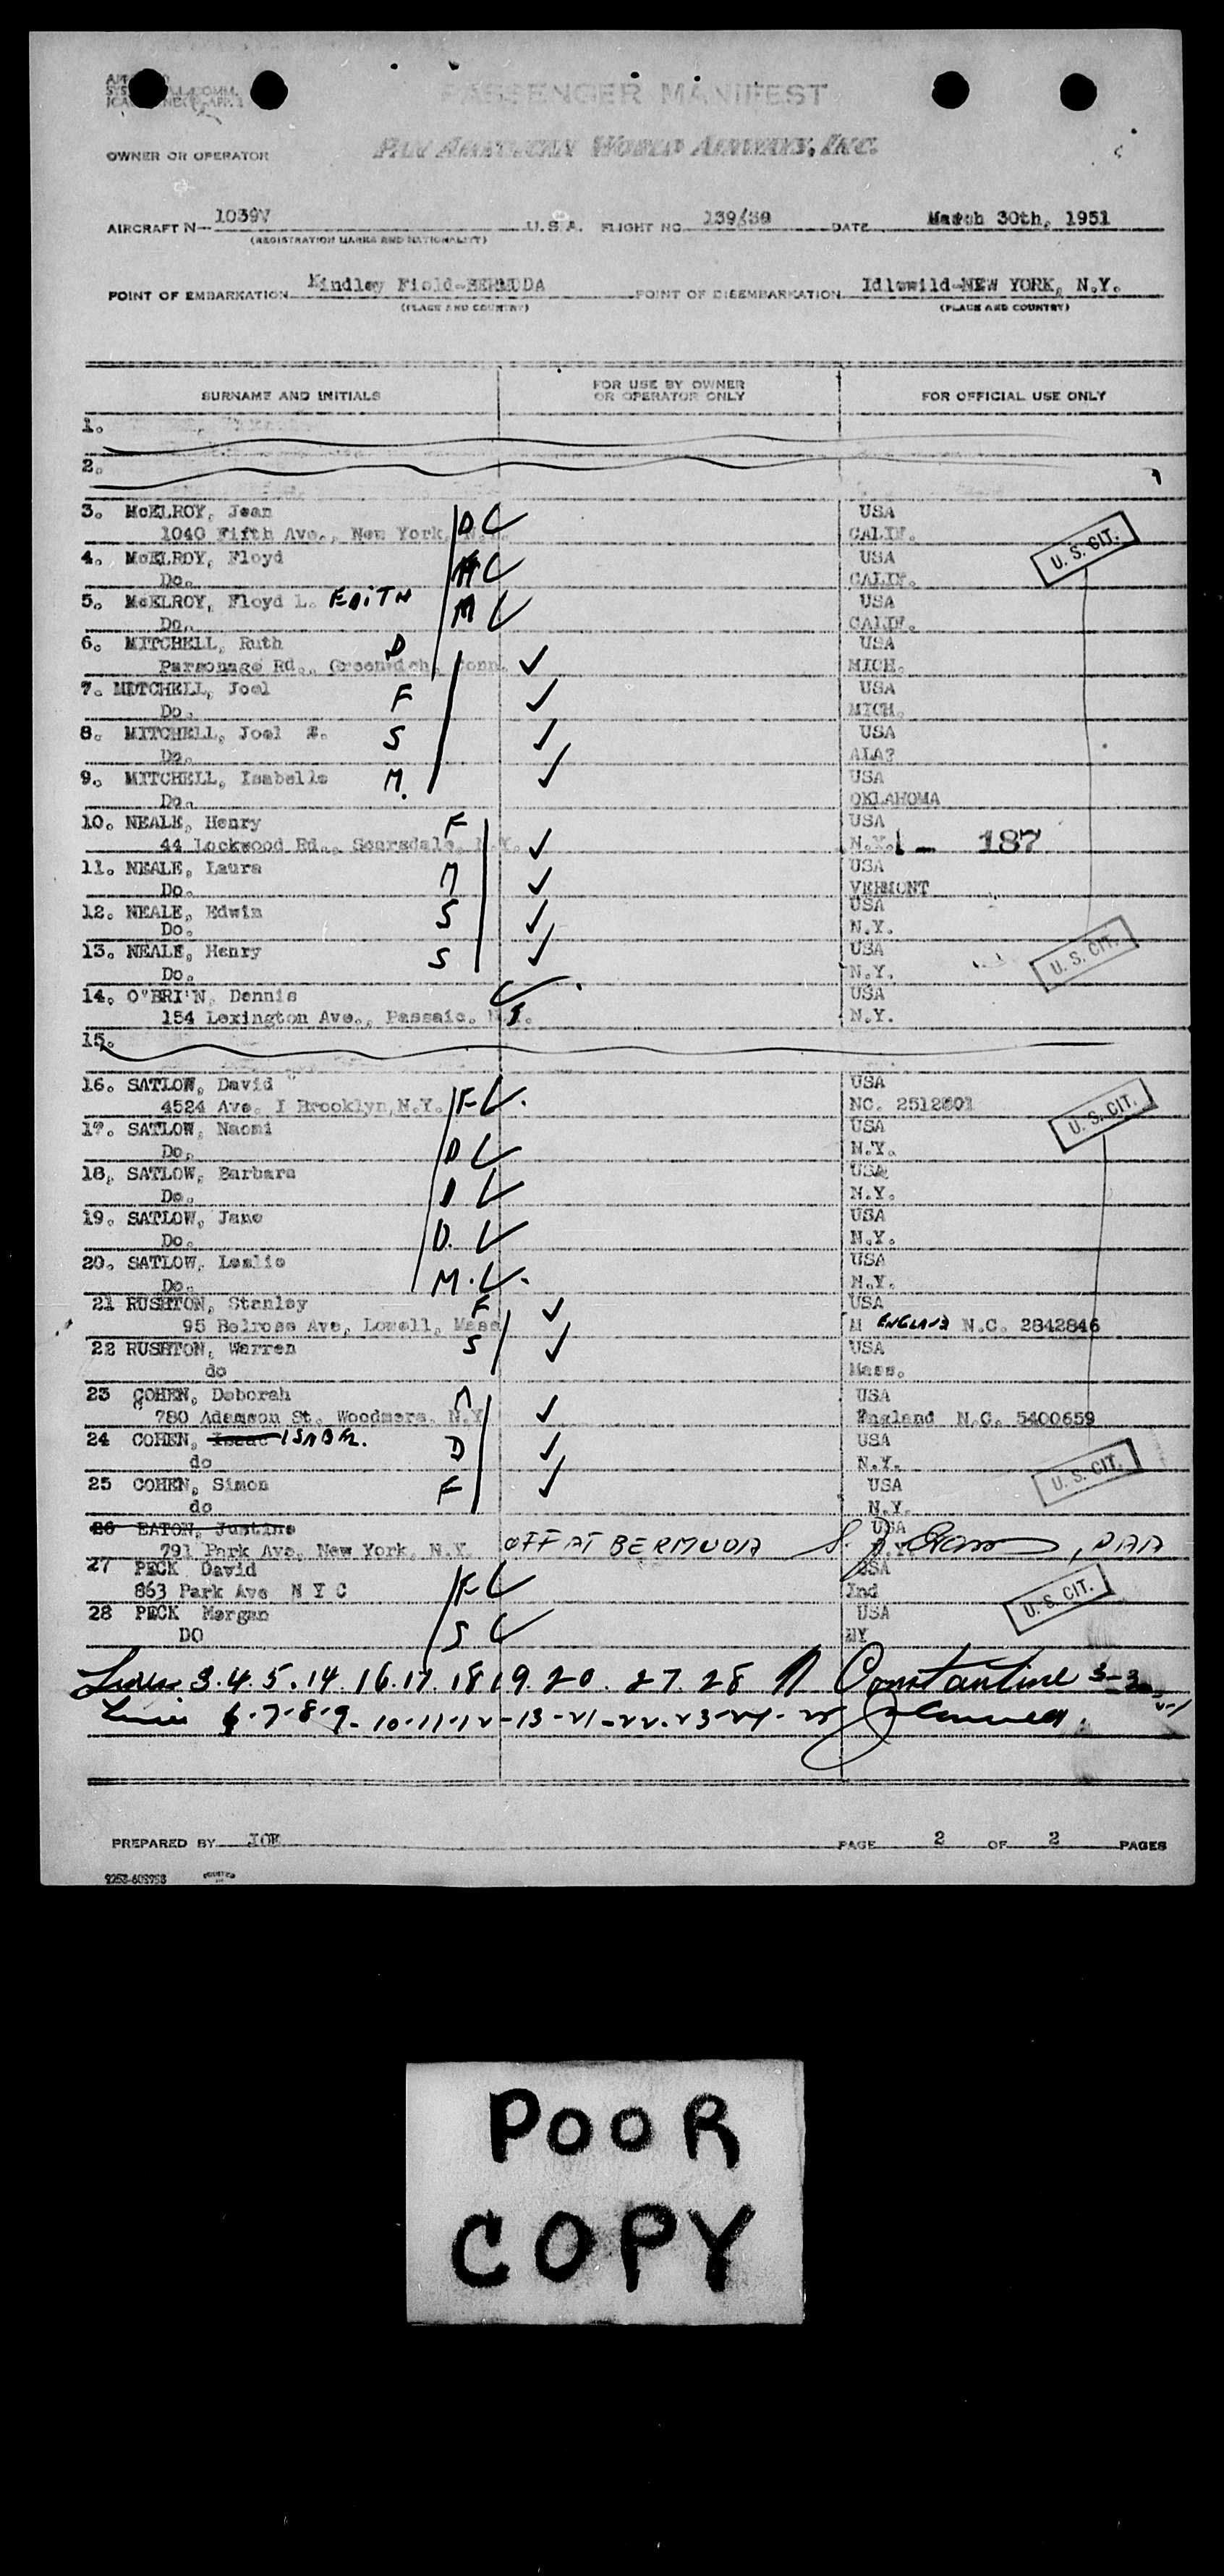 PASSENGER MANIFEST
OWNER OR OPERATOR PAN AMERICAN WORLD AIRWAYS, INC.
AIRCRAFT N- 1039V U.S.A. FLIGHT NO. 139/30 DATE March 30th, 1951
(REGISTRATION MARKS AND NATIONALITY)
POINT OF EMBARKATION Kindley Field-BERMUDA POINT OF DISEMBARKATION Idlewild-NEW YORK, N.Y.
(PLACE AND COUNTRY) (PLACE AND COUNTRY)
SURNAME AND INITIALS FOR USE BY OWNER OR OPERATOR ONLY FOR OFFICIAL USE ONLY
1.
2.
3. McELROY, Jean D USA
1040 Fifth Ave., New York, N.Y. CALIF.
U. S. CIT.
4. McELROY, Floyd USA
Do. CALIF.
5. McELROY, Floyd L. EDITH M USA
Do. CALIF.
6. MITCHELL, Ruth D USA
Parsonage Rd., Greenwich, Conn. MICH.
7. MITCHELL, Joel F USA
Do. MICH.
8. MITCHELL, Joel S USA
Do. ALA?
9. MITCHELL, Isabelle M. USA
Do. OKLAHOMA
10. NEALE, Henry F USA
44 Lockwood Rd., Scarsdale, N.Y. N.Y. 1 - 187
11. NEALE, Laura M USA
Do. VERMONT
12. NEALE, Edwin S USA
Do. N.Y.
13. NEALE, Henry S USA
Do. N.Y.
U. S. CIT.
14. O'BRI'N, Dennis USA
154 Lexington Ave., Passaic. N.J. N.Y.
15.
16. SATLOW, David F USA
4524 Ave. I Brooklyn, N.Y. NC. 2512801
U. S. CIT.
17. SATLOW, Naomi D USA
Do. N.Y.
18. SATLOW, Barbara D USA
Do. N.Y.
19. SATLOW, Jane D. USA
Do. N.Y.
20. SATLOW, Leslie M. USA
Do. N.Y.
21 RUSHTON, Stanley F USA
95 Belrose Ave, Lowell, Mass M ENGLAND N.C. 2842846
22 RUSHTON, Warren S USA
do Mass.
23 COHEN, Deborah M USA
780 Adamson St. Woodmere, N.Y. England N.C. 5400659
24 COHEN, Isaac ISABEL. D USA
do N.Y.
25 COHEN, Simon F USA
do N.Y.
U. S. CIT.
26 EATON, Justine USA
791 Park Ave, New York, N.Y. OFF AT BERMUDA , PAA
27 PECK David F USA
863 Park Ave N Y C Ind
28 PECK Morgan S USA
DO NY
U. S. CIT.
Lines 3.4.5.14.16.17.18 19.20.27.28 Constantine
Lines 6-7-8-9-10-11-12-13-21-22-23-24-25
PREPARED BY JOE PAGE 2 OF 2 PAGES
POOR
COPY